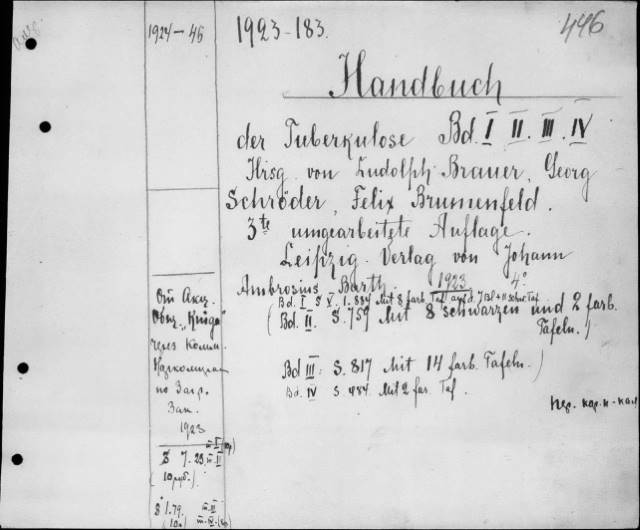 1924-46
1923-183.
446
Handbuch
der Tuberkulose Bd. I II. III. IV
Hrsg. von Ludolph Brauer, Georg
Schröder, Felix Brumenfeld.
3te umgearbeitete Auflage.
Leipzig. Verlag von Johann
Ambrosius Barth. 1923 4°
Bd. I S V. 1. 884 Mit 8 farb. Taf.
(Bd. II. S. 759 Mit 8 schwarzen und 2 farb.
Tafeln.)
Bd III: S. 817 Mit 14 farb. Tafeln.)
Bd. IV S. 484. Mit 2 far. Taf.
От Акц.
Общ. „Книга"
через Комис.
по Загр.
Зак.
1923
$ 7.23
(10 руб.)
$ 1.79.